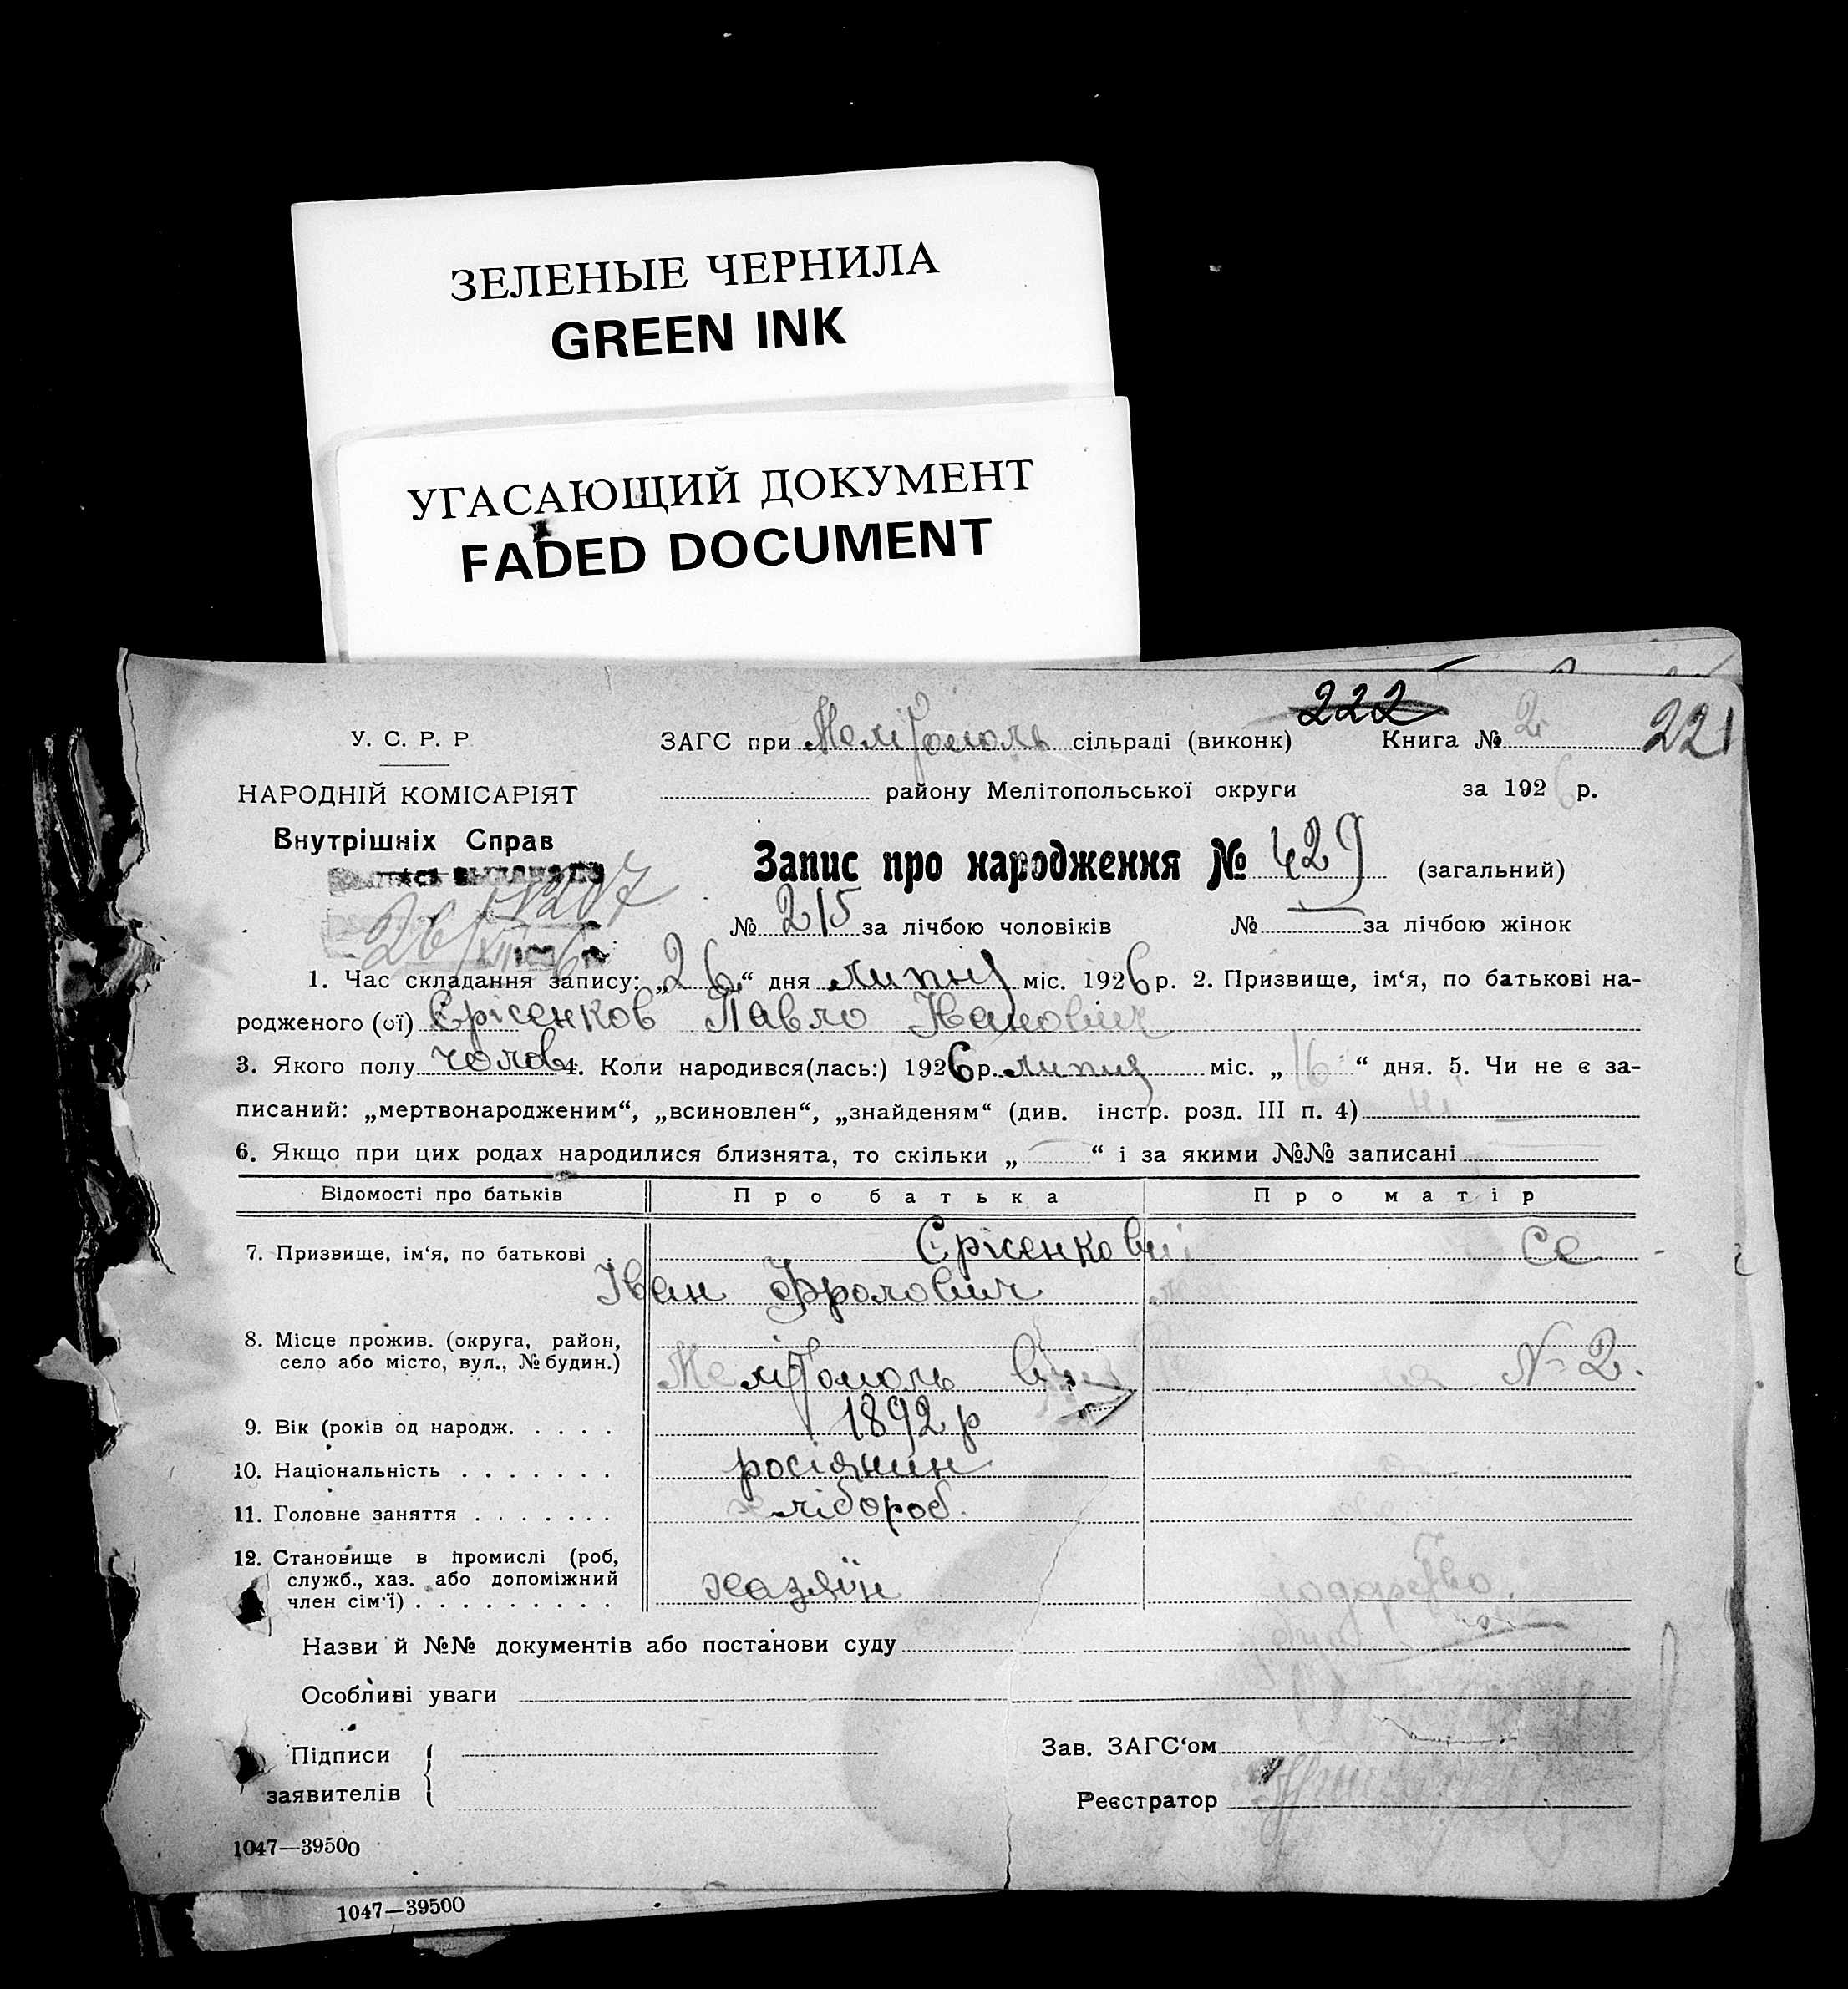 ЗЕЛЕНЫЕ ЧЕРНИЛА
GREEN INK
УГАСАЮЩИЙ ДОКУМЕНТ
FADED DOCUMENT
222
У. С. Р. Р. ЗАГС при Мелітополь сільраді (виконк) Книга № 2 221
НАРОДНІЙ КОМІСАРІЯТ району Мелітопольської округи за 1926 р.
Внутрішніх Справ
Запис про народження № 429 (загальний)
№ 215 за лічбою чоловіків № за лічбою жінок
1. Час складання запису: „26“ дня липня міс. 1926 р. 2. Призвище, ім‘я, по батькові на-
родженого (ої) Єрісенков Павло Іванович
3. Якого полу чолов 4. Коли народився(лась:) 1926 р. липня міс. „16“ дня. 5. Чи не є за-
писаний: „мертвонародженим“, „всиновлен“, „знайденям“ (див. інстр. розд. III п. 4) ні
6. Якщо при цих родах народилися близнята, то скільки „ “ і за якими №№ записані
Відомості про батьків Про батька Про матір
7. Призвище, ім‘я, по батькові Єрісенкови
Іван Фролович
8. Місце прожив. (округа, район,
село або місто, вул., № будин.) Мелітополь № 2.
9. Вік (років од народж. . . . . 1892 р
10. Національність . . . . . . . росіянин
11. Головне заняття . . . . . . . хлібороб.
12. Становище в промислі (роб,
служб., хаз. або допоміжний
член сім‘ї) . . . . . . . . . хазяїн
Назви й №№ документів або постанови суду
Особливі уваги
Підписи
заявителів
Зав. ЗАГС‘ом
Реєстратор
1047—39500
1047—39500